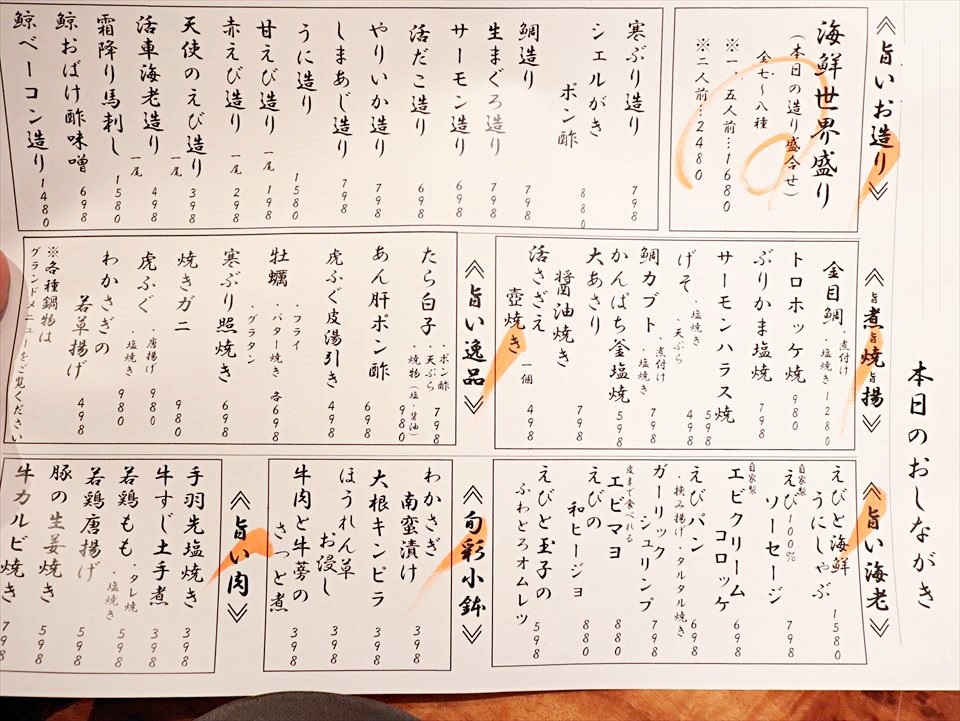 本日のおしながき
≪旨いお造り≫
海鮮世界盛り
(本日の造り盛合せ)
全七〜八種
※一、五人前…1680
※二人前…2480
寒ぶり造り 798
シェルがき
ポン酢 880
鯛造り 698
生まぐろ造り 798
サーモン造り 698
活だこ造り 698
やりいか造り 798
しまあじ造り 798
うに造り 1580
甘えび造り 一尾 198
赤えび造り 一尾 298
天使のえび造り 一尾 398
活車海老造り 一尾 498
霜降り馬刺し 1580
鯨おばけ酢味噌 698
鯨ベーコン造り 1480
≪旨煮旨焼旨揚≫
金目鯛 ・煮付け ・塩焼き 1280
トロホッケ焼 980
ぶりかま塩焼 798
サーモンハラス焼 598
げそ ・塩焼き ・天ぷら 498
鯛カブト ・煮付け ・塩焼き 798
かんぱち釜塩焼 598
大あさり
醤油焼き 498
活さざえ
壺焼き 一個 498
≪旨い逸品≫
たら白子 ・ポン酢 ・天ぷら 798
・焼物(塩・醤油) 980
あん肝ポン酢 698
虎ふぐ皮湯引き 498
牡蠣 ・フライ ・バター焼き ・グラタン 各698
寒ぶり照焼き 698
焼きガニ 980
虎ふぐ ・唐揚げ 980
・塩焼き 980
わかさぎの
若草揚げ 498
※各種鍋物は
グランドメニューをご覧ください
≪旨い海老≫
えびと海鮮
うにしゃぶ 1580
自家製 えび100%
ソーセージ 798
自家製 エビクリーム
コロッケ 698
えびパン ・挟み揚げ ・タルタル焼き 698
ガーリック
シュリンプ 798
皮まで食べれる エビマヨ 880
えびの
和ヒージョ 880
えびと玉子の
ふわとろオムレツ 598
≪旬彩小鉢≫
わかさぎ
南蛮漬け 398
大根キンピラ 398
ほうれん草
お浸し 398
牛肉と牛蒡の
さっと煮 398
≪旨い肉≫
手羽先塩焼き 398
牛すじ土手煮 398
若鶏もも ・タレ焼 ・塩焼き 598
若鶏唐揚げ 498
豚の生姜焼き 598
牛カルビ焼き 798